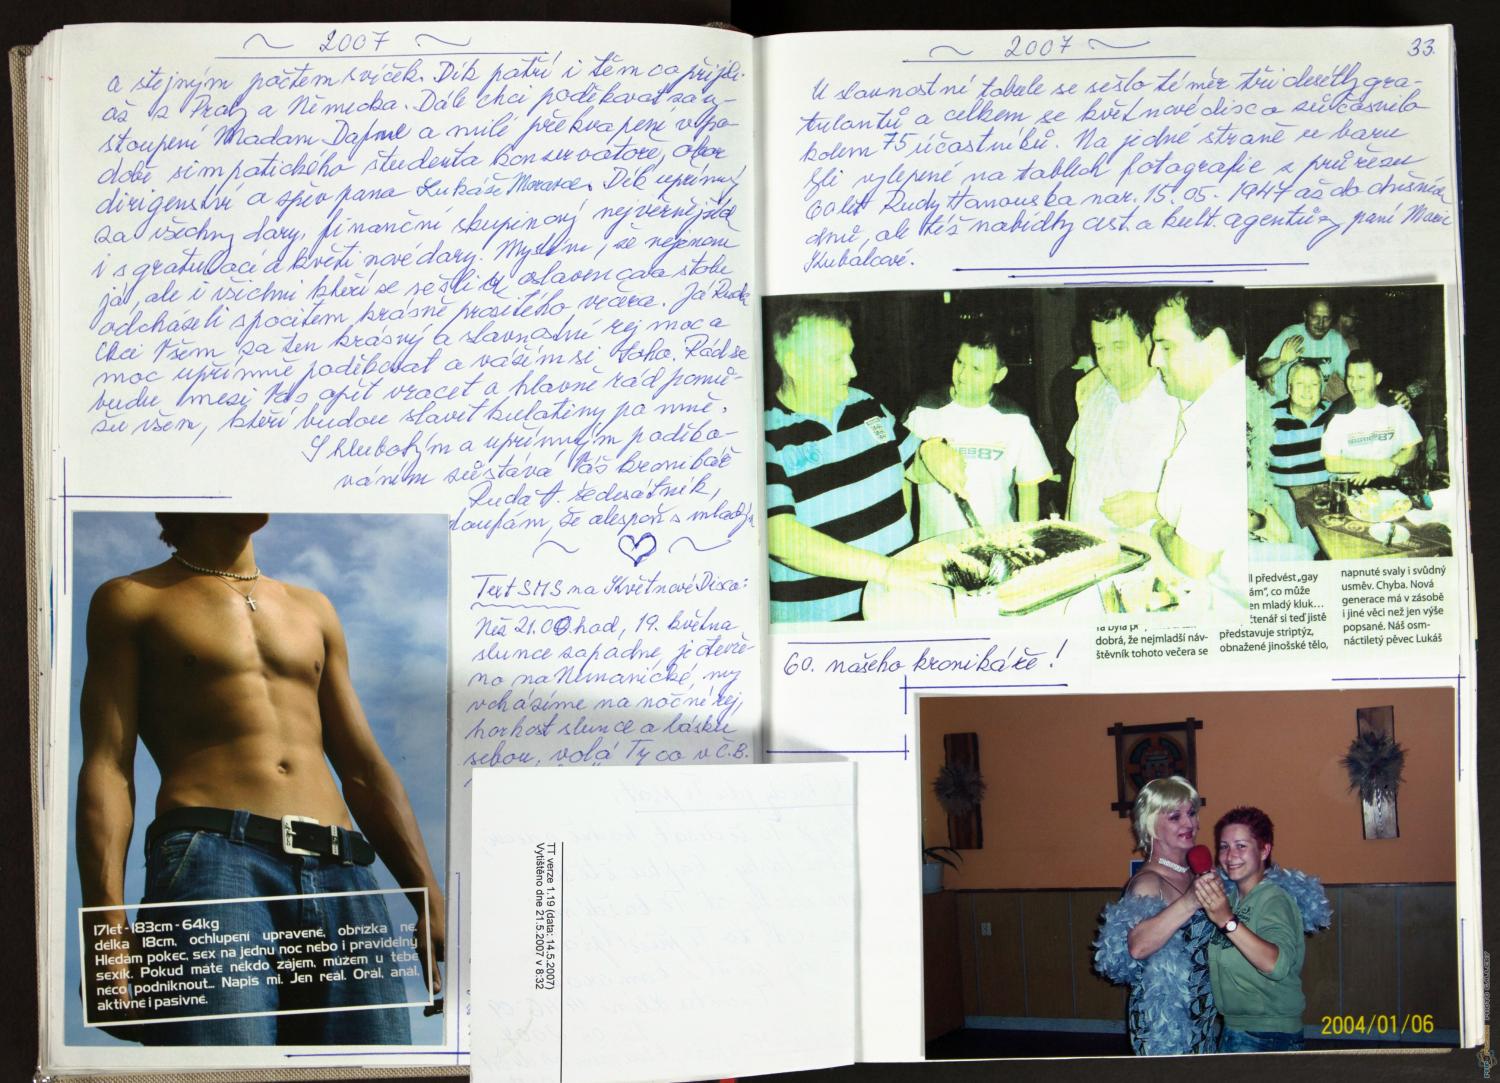 ~ 2007 ~
a stejným počtem svíček. Dík patří i těm co přijeli
až z Prahy a Německa. Dále chci poděkovat za vy-
stoupení Madam Dafné a milé překvapení v po-
době simpatického študenta konservatoře, obor
dirigenství a zpěv pana Lukáše Moravce. Dík upřímný
za všechny dary, finanční skupinový nejvěrnějších
i s gratulací a květinové dary. Myslím, že nejenom
já, ale i všichni kteří se sešli u oslavencova stolu
odcházeli s pocitem krásně prožitého večera. Já Ruda
chci Všem za ten krásný a slavnostní rej moc a
moc upřímně poděkovat a vážím si toho. Rád se
budu mezi Vás opět vracet a hlavně rád pomů-
žu všem, kteří budou slavit kulatiny po mně.
S hlubokým a upřímným poděko-
váním zůstává Váš kronikář
Ruda H. šedesátník,
doufám, že alespoň s mladým
~ ~
Text SMS na Květnové Disco:
Než 21.00 hod, 19. května
slunce zapadne, je otevře-
no na Nemanické, my
vcházíme na noční rej,
horkost slunce a lásku
sebou, volá Ty co v Č.B.
17let - 183cm - 64kg
délka 18cm, ochlupení upravené, obřízka ne.
Hledám pokec, sex na jednu noc nebo i pravidelný
sexík. Pokud máte někdo zájem, můžem u tebe
něco podniknout... Napiš mi. Jen reál. Orál, anál,
aktivně i pasivně.
TT verze 1.19 (data: 14.5.2007)
Vytištěno dne 21.5.2007 v 8:32
~ 2007 ~
33
U slavnostní tabule se sešlo téměř tři desítky gra-
tulantů a celkem se květnové disca zúčasnilo
kolem 75 účastníků. Na jedné straně u baru
byli vylepené na tabloh fotografie z průřezu
60 let Rudy Hanouska nar. 15.05.1947 až do dnešních
dnů, ale též nabídky cest. a kult. agentůry paní Marie
Kubalcové.
87
87
ll předvést „gay
ám“, co může
en mladý kluk...
čtenář si teď jistě
představuje striptýz,
obnažené jinošské tělo,
dobrá, že nejmladší náv-
štěvník tohoto večera se
napnuté svaly i svůdný
usměv. Chyba. Nová
generace má v zásobě
i jiné věci než jen výše
popsané. Náš osm-
náctiletý pěvec Lukáš
60. našeho kronikáře!
2004/01/06